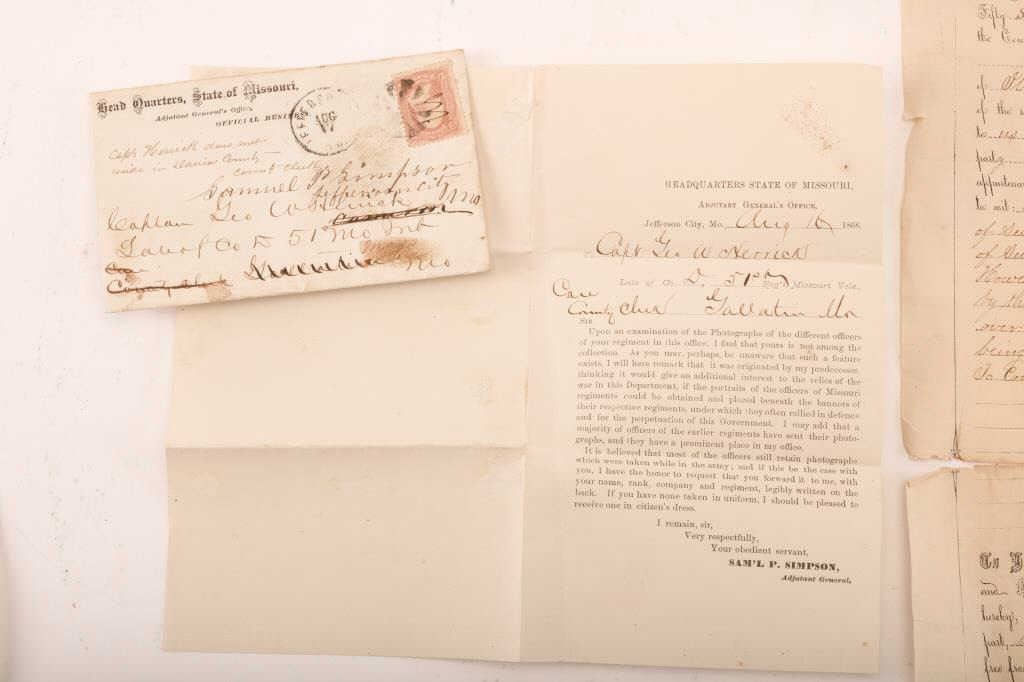 Head Quarters, State of Missouri.
Adjutant General's Office,
OFFICIAL BUSIN
AUG
17
Capt Herrick does not
reside in Daviess County
County Clerk
Samuel P Simpson
Jefferson City
Mo
Captain Geo W Herrick
Late of Co D 51st Mo Inf
Mo
HEADQUARTERS STATE OF MISSOURI,
ADJUTANT GENERAL'S OFFICE,
Jefferson City, Mo., Aug 16 1866
Capt Geo W Herrick
Late of Co. D. 51st Reg't Missouri Vols.
Care
County Clerk Gallatin Mo
Sir:
Upon an examination of the Photographs of the different officers
of your regiment in this office, I find that yours is not among the
collection. As you may, perhaps, be unaware that such a feature
exists, I will here remark that it was originated by my predecessor,
thinking it would give an additional interest to the relics of the
war in this Department, if the portraits of the officers of Missouri
regiments could be obtained and placed beneath the banners of
their respective regiments, under which they often rallied in defence
and for the perpetuation of this Government. I may add that a
majority of officers of the earlier regiments have sent their photo-
graphs, and they have a prominent place in my office.
It is believed that most of the officers still retain photographs
which were taken while in the army; and if this be the case with
you, I have the honor to request that you forward it to me, with
your name, rank, company and regiment, legibly written on the
back. If you have none taken in uniform, I should be pleased to
receive one in citizen's dress.
I remain, sir,
Very respectfully,
Your obedient servant,
SAM'L P. SIMPSON,
Adjutant General.
Fifty
the Cou
of
of the
to
party
appurtenan
to wit:
of Sec
of Sec
How
by the
over
being
To
To
and
hereby,
part,
free from